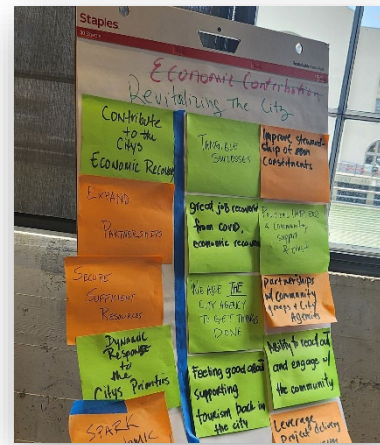 Staples
Economic Contribution
Revitalizing The City
Contribute
to the
City's
Economic Recovery
EXPAND
PARTNERSHIPS
SECURE
SUFFICIENT
RESOURCES
Dynamic
Response
to
the
Citys Priorities
SPARK
TANGIBLE
SUCCESSES
great job recovered
from covid,
economic recovery
WE ARE THE
CITY AGENCY
TO GET THINGS
DONE
Feeling good about
supporting
tourism back in
the city
Improve steward-
ship of
constituents
& community
support
Partnerships
w/ community
groups & City
Agencies
Ability to reach out
and engage w/
the community
Leverage
Project delivery